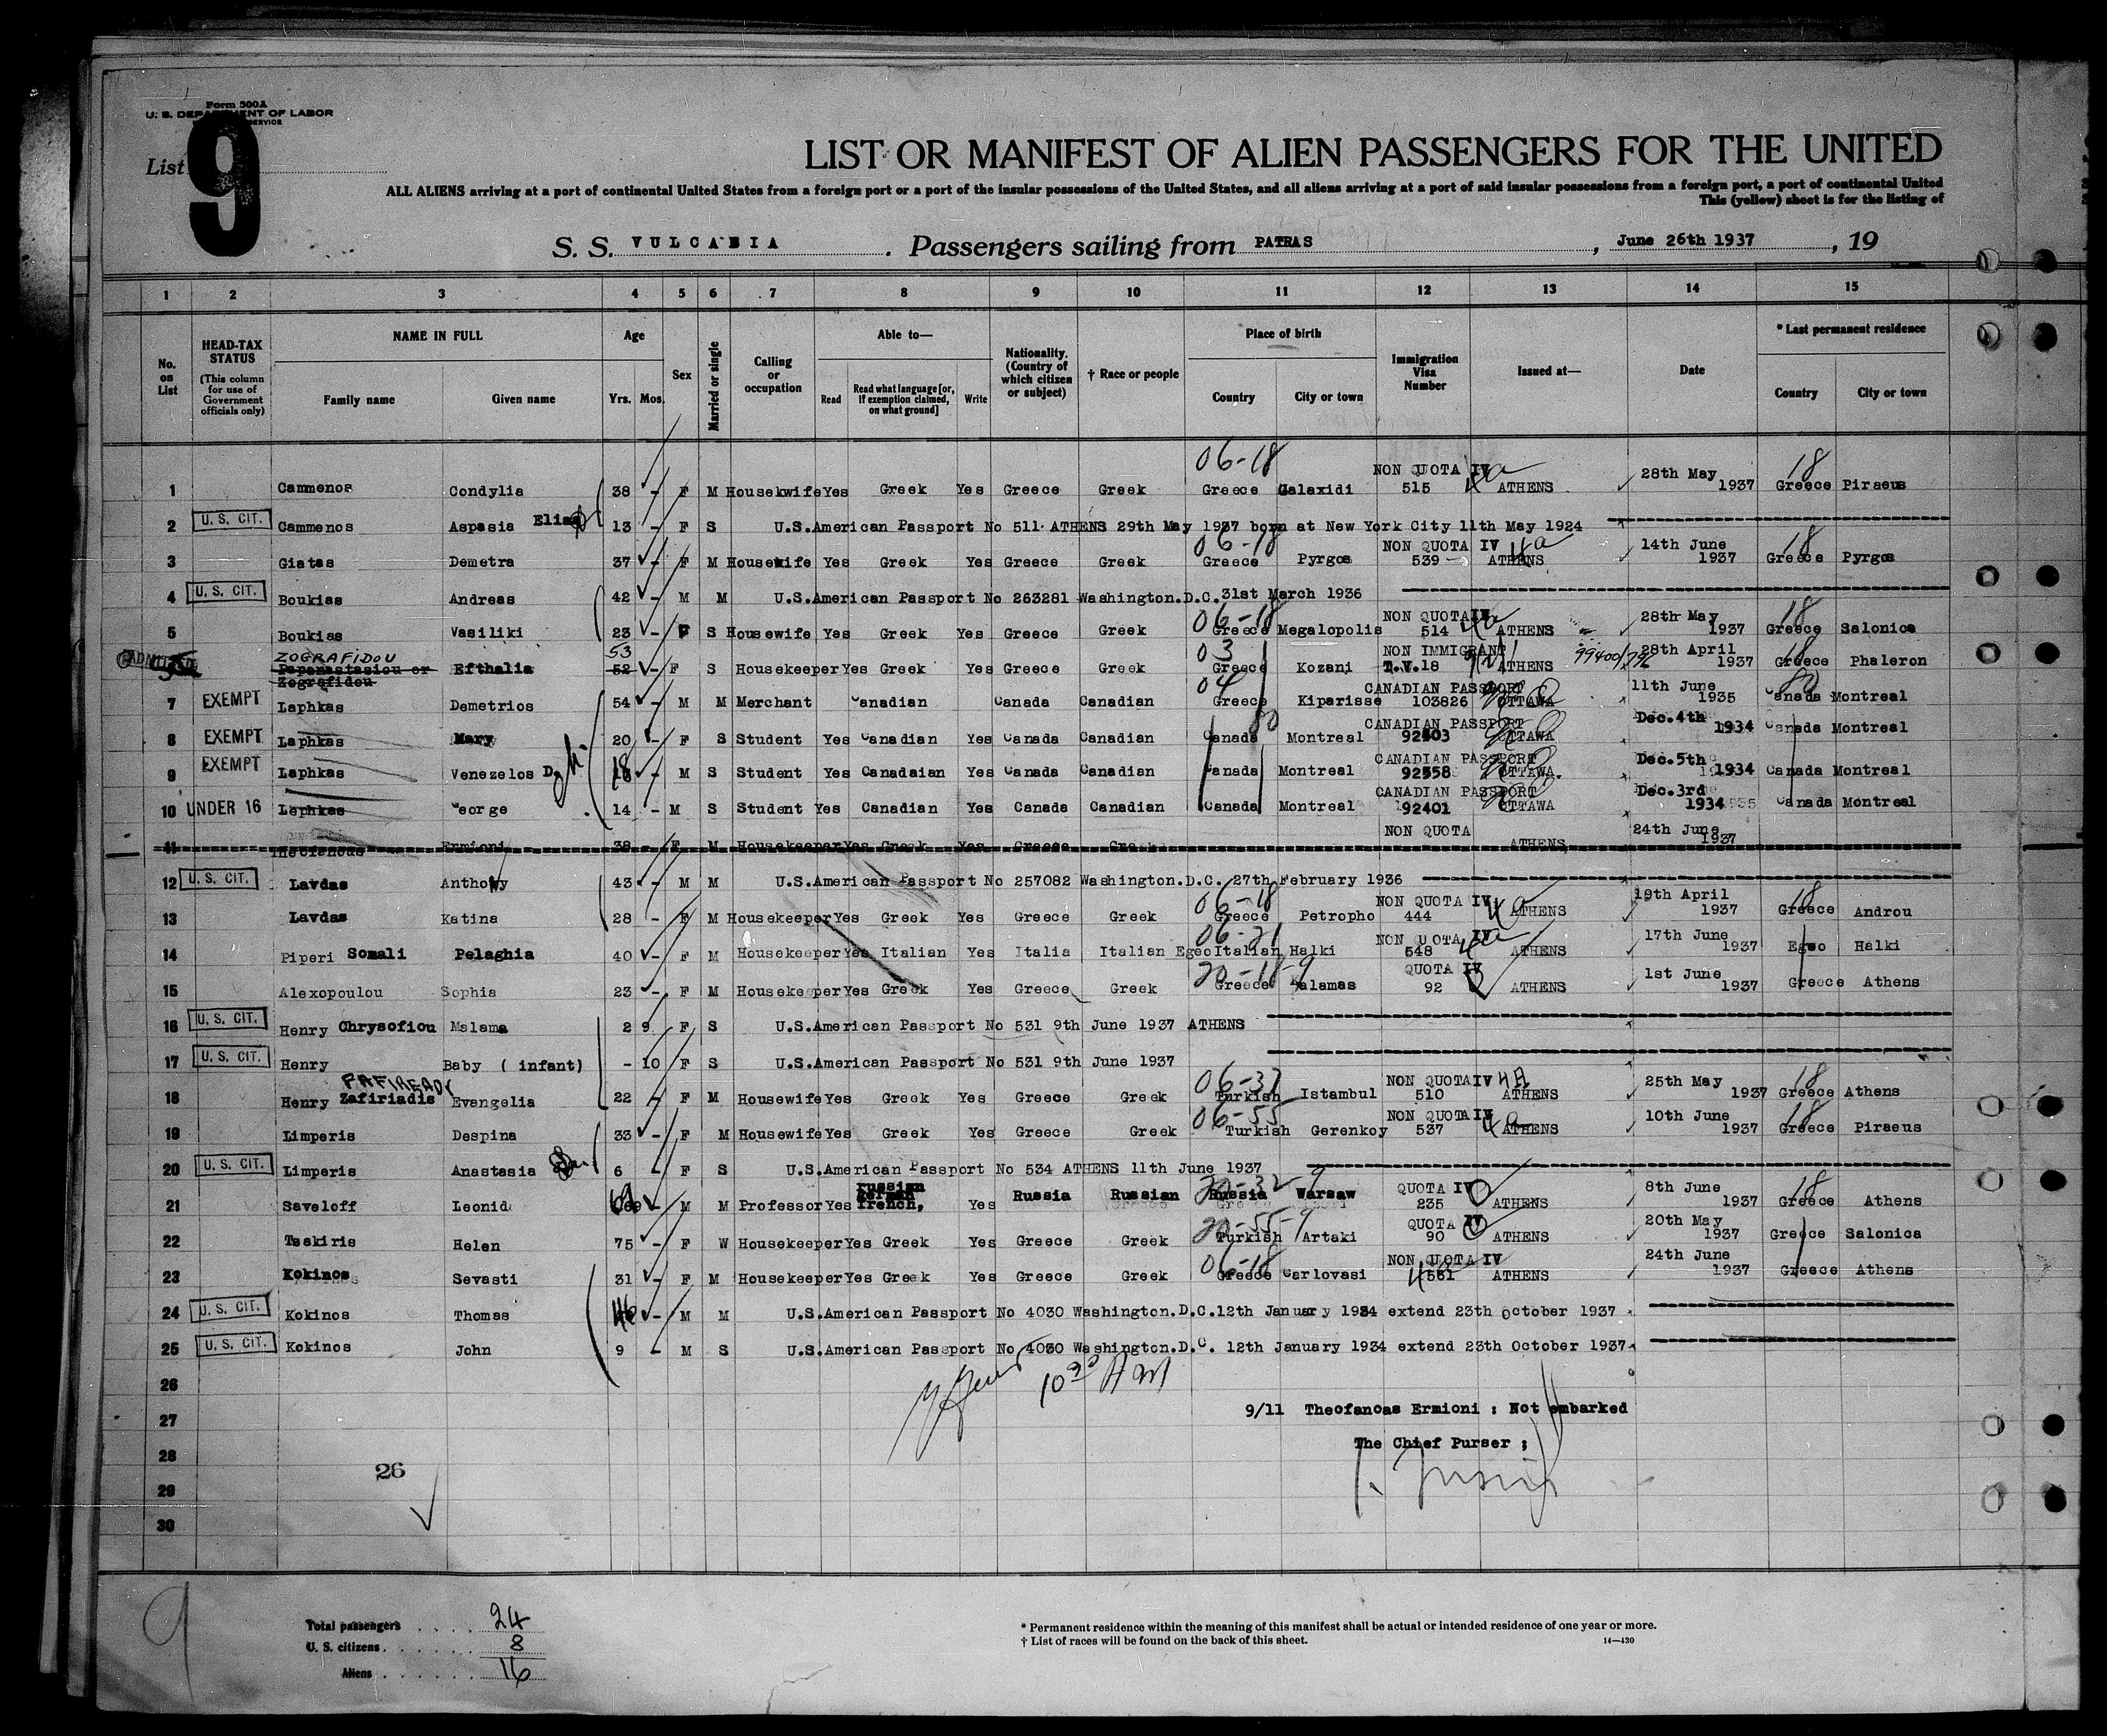 Form 500A
U. S. DEPARTMENT OF LABOR
SERVICE
List 9
LIST OR MANIFEST OF ALIEN PASSENGERS FOR THE UNITED
ALL ALIENS arriving at a port of continental United States from a foreign port or a port of the insular possessions of the United States, and all aliens arriving at a port of said insular possessions from a foreign port, a port of continental United
This (yellow) sheet is for the listing of
S. S. VULCANIA . Passengers sailing from PATRAS , June 26th 1937 , 19
1 2 3 4 5 6 7 8 9 10 11 12 13 14 15
No. on List
HEAD-TAX STATUS (This column for use of Government officials only)
NAME IN FULL Family name Given name
Age Yrs. Mos.
Sex
Married or single
Calling or occupation
Able to— Read Read what language [or, if exemption claimed, on what ground] Write
Nationality. (Country of which citizen or subject)
† Race or people
Place of birth Country City or town
Immigration Visa Number
Issued at—
Date
* Last permanent residence Country City or town
06-18 NON QUOTA IV 4a 28th May 18
1 Cammenos Condylia 38 - F M Housekwife Yes Greek Yes Greece Greek Greece Galaxidi 515 ATHENS 1937 Greece Piraeus
2 U. S. CIT. Cammenos Aspasia 13 - F S U.S.American Passport No 511 ATHENS 29th May 1937 born at New York City 11th May 1924
06-18 NON QUOTA IV 4a 14th June 18
3 Giatas Demetra 37 - F M Housewife Yes Greek Yes Greece Greek Greece Pyrgos 539 ATHENS 1937 Greece Pyrgos
4 U. S. CIT. Boukias Andreas 42 - M M U.S.American Passport No 263281 Washington.D.C. 31st March 1936
06-18 NON QUOTA IV 4a 28th May 18
5 Boukias Vasiliki 23 - F S Housewife Yes Greek Yes Greece Greek Greece Megalopolis 514 ATHENS 1937 Greece Salonica
ZOGRAFIDOU 53 03 NON IMMIGRANT 99400/796 28th April 18
ADMITTED Papanastasiou or Efthalia 52 - F S Housekeeper Yes Greek Yes Greece Greek Greece Kozani T.V.18 ATHENS 1937 Greece Phaleron
Zografidou
04 CANADIAN PASSPORT 11th June 80
7 EXEMPT Laphkas Demetrios 54 - M M Merchant Canadian Canada Canadian Greece Kiparisse 103826 OTTAWA 1935 Canada Montreal
80 CANADIAN PASSPORT Dec.4th
8 EXEMPT Laphkas Mary 20 - F S Student Yes Canadian Yes Canada Canadian Canada Montreal 92503 OTTAWA 1934 Canada Montreal
CANADIAN PASSPORT Dec.5th
9 EXEMPT Laphkas Venezelos D 18 - M S Student Yes Canadaian Yes Canada Canadian Canada Montreal 92558 OTTAWA. 1934 Canada Montreal
CANADIAN PASSPORT Dec.3rd
10 UNDER 16 Laphkas George 14 - M S Student Yes Canadian Yes Canada Canadian Canada Montreal 92401 OTTAWA 1934 Canada Montreal
NON QUOTA 24th June
11 Theofanous Ermioni 38 - F M Housekeeper Yes Greek Yes Greece Greek ATHENS 1937
12 U. S. CIT. Lavdas Anthony 43 - M M U.S.American Passport No 257082 Washington.D.C. 27th February 1936
06-18 NON QUOTA IV 4a 19th April 18
13 Lavdas Katina 28 - F M Housekeeper Yes Greek Yes Greece Greek Greece Petropho 444 ATHENS 1937 Greece Androu
06-21 NON QUOTA IV 4a 17th June
14 Piperi Somali Pelaghia 40 - F M Housekeeper Yes Italian Yes Italia Italian Egeo Italian Halki 548 ATHENS 1937 Egeo Halki
20-18-9 QUOTA IV 1st June
15 Alexopoulou Sophia 23 - F M Housekeeper Yes Greek Yes Greece Greek Greece Kalamas 92 ATHENS 1937 Greece Athens
16 U. S. CIT. Henry Chrysofiou Malama 2 9 F S U.S.American Passport No 531 9th June 1937 ATHENS
17 U. S. CIT. Henry Baby ( infant) - 10 F S U.S.American Passport No 531 9th June 1937
06-37 NON QUOTA IV 4A 25th May 18
18 Henry Zafiriadis Evangelia 22 - F M Housewife Yes Greek Yes Greece Greek Turkish Istambul 510 ATHENS 1937 Greece Athens
06-55 NON QUOTA IV 4a 10th June 18
19 Limperis Despina 33 - F M Housewife Yes Greek Yes Greece Greek Turkish Gerenkoy 537 ATHENS 1937 Greece Piraeus
20 U. S. CIT. Limperis Anastasia 6 - F S U.S.American Passport No 534 ATHENS 11th June 1937
russian german 20-32-9 QUOTA IV 8th June 18
21 Saveloff Leonid - M M Professor Yes french, Yes Russia Russian Russia Warsaw 235 ATHENS 1937 Greece Athens
20-55-9 QUOTA IV 20th May
22 Tsakiris Helen 75 - F W Housekeeper Yes Greek Yes Greece Greek Turkish Artaki 90 ATHENS 1937 Greece Salonica
06-18 NON QUOTA IV 24th June
23 Kokinos Sevasti 31 - F M Housekeeper Yes Greek Yes Greece Greek Greece Carlovasi 561 ATHENS 1937 Greece Athens
24 U. S. CIT. Kokinos Thomas 46 - M M U.S.American Passport No 4030 Washington.D.C.12th January 1934 extend 23th October 1937
25 U. S. CIT. Kokinos John 9 - M S U.S.American Passport No 4030 Washington.D.C. 12th January 1934 extend 23th October 1937
26
10 30 AM
27 9/11 Theofanoas Ermioni : Not embarked
28 The Chief Purser ;
26
29
30
9
Total passengers 24
U. S. citizens 8
Aliens 16
* Permanent residence within the meaning of this manifest shall be actual or intended residence of one year or more.
† List of races will be found on the back of this sheet. 14—430